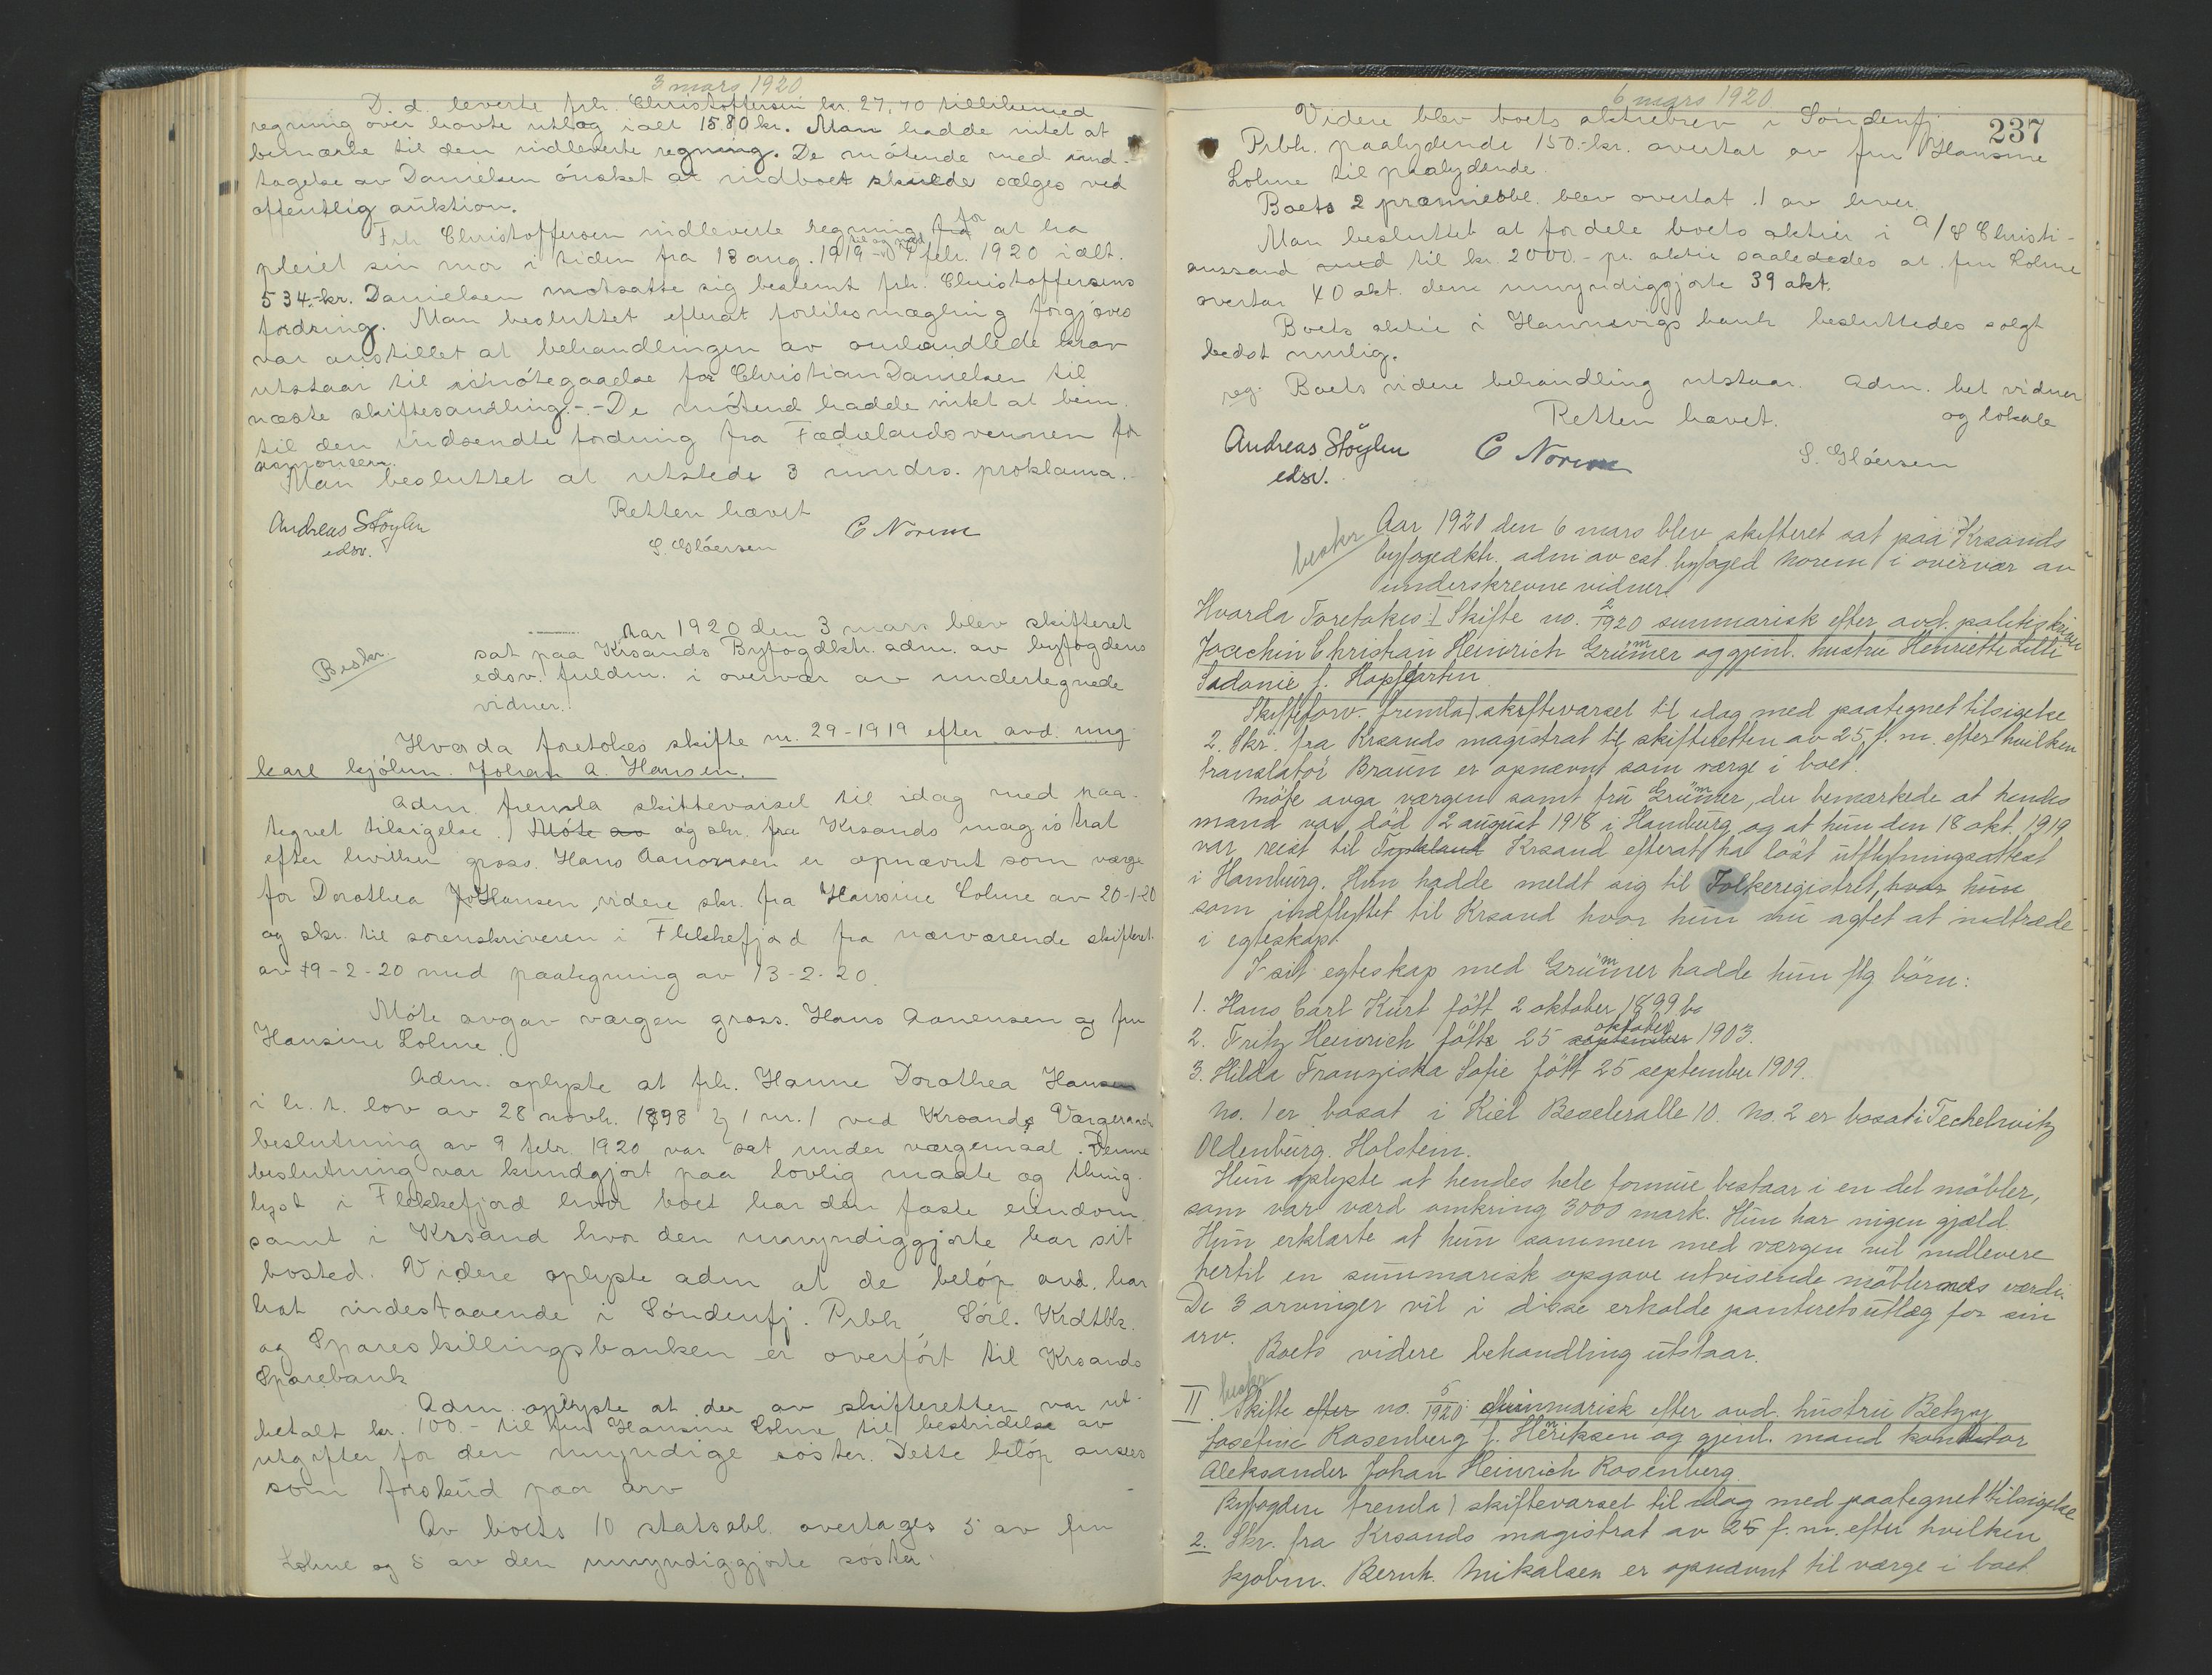 3 mars 1920
D. d. leverte frk. Christoffersen kr. 27,40 tillikemed
regning over havte utlæg ialt 1580 kr. Man hadde intet at
bemærke til den indleverte regning. De mötende med und-
tagelse av Danielsen önsket at indboet skulde sælges ved
offentlig auktion.
Frk. Christoffersen indleverte regning for at ha
pleiet sin mor i tiden fra 13 aug. 1919 til og med febr. 1920 ialt.
534.-kr. Danielsen motsatte sig bestemt frk. Christoffersens
fordring. Man besluttet efterat forliksmægling forgjæves
var anstillet at behandlingen av omhandlede krav
utstaar til imötegaaelse for Christian Danielsen til
næste skiftesamling.-.-De mötend hadde intet at bem.
til den indsendte fordring fra Fædrelandsvennen for
annoncen.
Man besluttet at utstede 3 mndrs. proklama.-
Retten hævet
Andreas Stöylen C Norem
edsv. S. Glöersen
Beskr.
Aar 1920 den 3 mars blev skifteret
sat paa Krsands Byfogdktr. adm. av byfogdens
edsv. fuldm. i overvær av undertegnede
vidner.:
Hvorda foretokes skifte nr. 29-1919 efter avd. ung-
karl kjölnm. Johan A. Hansen.
Adm. fremla skiftevarsel til idag med paa-
tegnet tilsigelse. Möte av og skr. fra Krsands magistrat
efter hvilken gross. Hans Aanonsen er opnævnt som værge
for Dorothea Hansen, videre skr. fra Hansine Lohne av 20-1-20
og skr. til sorenskriveren i Flekkefjord fra nærværende skifteret
av 19-2-20 med paategning av 13-2-20.
Möte avgav værgen gross. Hans Aanensen og fru
Hansine Lohne.
Adm. oplyste at frk. Hanne Dorothea Hansen
i h. t. lov av 28 novb. 1898 § 1 nr. 1 ved Krsands Værgeraads
beslutning av 9 febr. 1920 var sat under værgemaal. Denne
beslutning var kundgjort paa lovlig maate og thing-
lyst i Flekkefjord hvor boet har den faste eiendom
samt i Krsand hvor den umyndiggjorte har sit
bosted. Videre oplyste adm at de belöp avd. har
hat indestaaende i Söndenfj. Prbk, Sörl. Krdtbk.
og Spareskillingsbanken er overfört til Krsands
Sparebank
Adm. oplyste at der av skifteretten var ut-
betalt kr. 100.- til fru Hansine Lohne til bestridelse av
utgifter for den umyndige söster. Dette belöp ansees
som forskud paa arv
Av boets 10 statsobl. overtages 5 av fru
Lohne og 5 av den umyndiggjorte söster.
6 mars 1920
237
Videre blev boets aktiebrev i Söndenfj.
Prbk. paalydende 150.-kr. overtat av fru Hansine
Lohne til paalydende.
Boets 2 præmieobl. blev overtat 1 av hver.
Man besluttet at fordele boets aktier i A/S Christi-
anssand med til kr. 2000.- pr. aktie saaledes at fru Lohne
overtar 40 akt. den umyndiggjorte 39 akt.
Boets aktie i Hannevigs bank besluttedes solgt
bedst mulig.
reg. Boets videre behandling utstaar. Adm. bet vidner
og lokale
Retten hævet.
Andreas Stöylen C Norem S. Glöersen
edsv.
beskr
Aar 1920 den 6 mars blev skifteret sat paa Krsands
byfogedktr. adm av cst. byfoged Norem i overvær av
underskrevne vidner.
Hvorda Foretokes: I Skifte no. 2/1920 summarisk efter avd. politiskriver
Joachin Christian Heinrich Grümmer og gjenl. hustru Henriette Lilli
Sadonie f. Hopfgarten
Skifteforv. fremla 1 skiftevarsel til idag med paategnet tilsigelse
2. Skr. fra Krsands magistrat til skifteretten av 25 f. m. efter hvilken
translatör Braun er opnævnt som værge i boet.
Möte avga værgen samt fru Grümmer, der bemærkede at hendes
mand var död 12 august 1918 i Hamburg og at hun den 18 okt. 1919
var reist til Krsand efterat ha löst utflytningsattest
i Hamburg. Hun hadde meldt sig til Folkeregistret, hvor hun
som indflyttet til Krsand hvor hun nu agtet at indtræde
i egteskap.
I sit egteskap med Grümmer hadde hun flg börn:
1. Hans Carl Kurt fött 2 oktober 1899 bo
2. Fritz Heinrich födt 25 september oktober 1903.
3. Hilda Franziska Sofie fött 25 september 1909.
No. 1 er bosat i Kiel Beseleralle 10. No. 2 er bosat i Techelwitz
Oldenburg. Holstein.
Hun oplyste at hendes hele formue bestaar i en del möbler,
som var værd omkring 3000 mark. Hun har ingen gjæld.
Hun erklærte at hun sammen med værgen vil indlevere
hertil en summarisk opgave utvisende möblernes værdi.
De 3 arvinger vil i disse erholde panteretsutlæg for sin
arv.
Boets videre behandling utstaar.
beskr
II. Skifte efter no. 5/1920 summarisk efter avd. hustru Betzy
Josefine Rosenberg f. Henriksen og gjenl. mand
Aleksander Johan Heinrich Rosenberg.
Byfogden fremla 1 skiftevarsel til idag med paategnet tilsigelse
2. Skr. fra Krsands magistrat av 25 f. m. efter hvilken
kjöbm. Bernh. Mikalsen er opnævnt til værge i boet